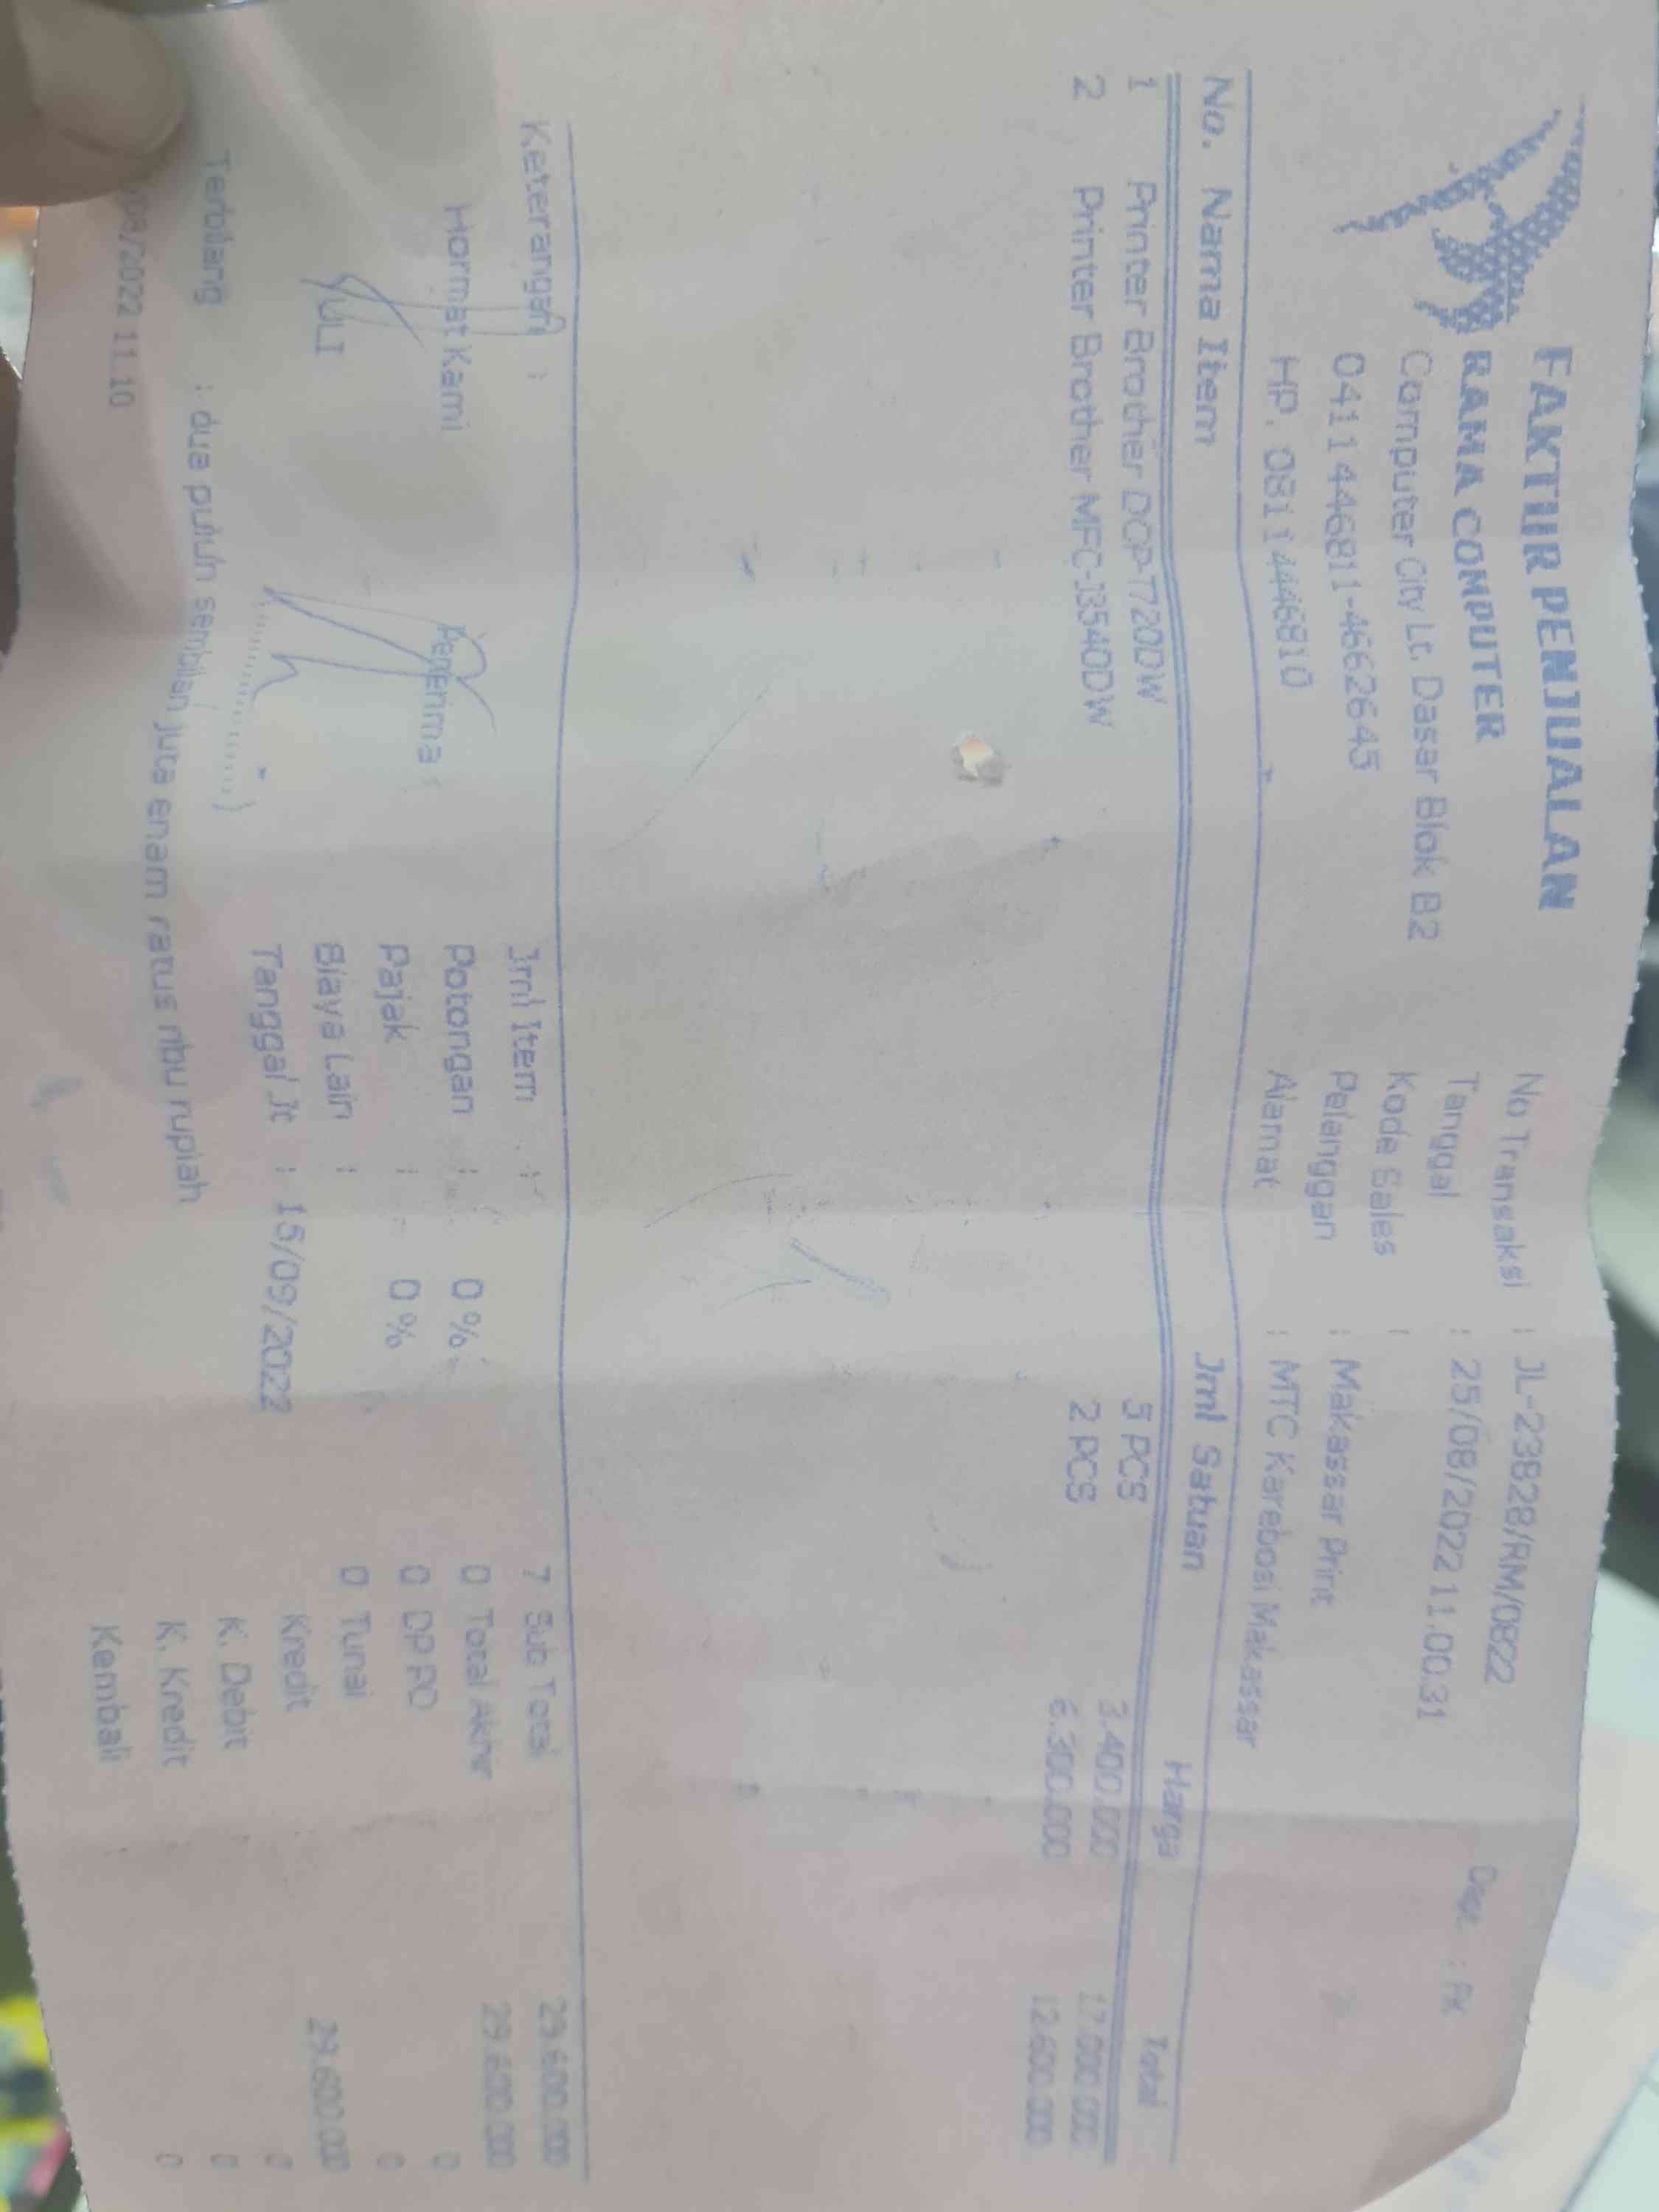 FAKTUR PENJUALAN
RAMA COMPUTER
Computer City Lt. Dasar Blok B2
0411 446811-4662645
HP. 0811 4446810
No Transaksi : JL-23828/RM/0822
Tanggal : 25/08/2022 11.00.31
Kode Sales :
Pelanggan : Makassar Print
Alamat : MTC Karebosi Makassar
No. Nama Item Jml Satuan Harga Total
1 Printer Brother DCP-T720DW 5 PCS 3.400.000 17.000.000
2 Printer Brother MFC-J3540DW 2 PCS 6.300.000 12.600.000
Keterangan : Jml Item : 7 Sub Total 29.600.000
Hormat Kami Penerima Potongan : 0 % 0 Total Akhir 29.600.000
Pajak : 0 % 0 DP PO 0
YULI Biaya Lain : 0 Tunai 0
Tanggal Jt : 15/09/2022 Kredit 29.600.000
K. Debit 0
Terbilang : dua puluh sembilan juta enam ratus ribu rupiah K. Kredit 0
/2022 11.10 Kembali 0